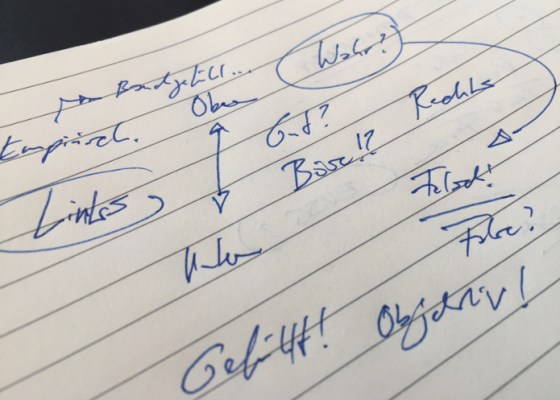 Bauchgefühl...
Wahr?
Empirisch.
Oben
Gut?
Rechts
Böse!?
Links
Falsch!
Unten
False?
Gefühlt!
Objektiv!